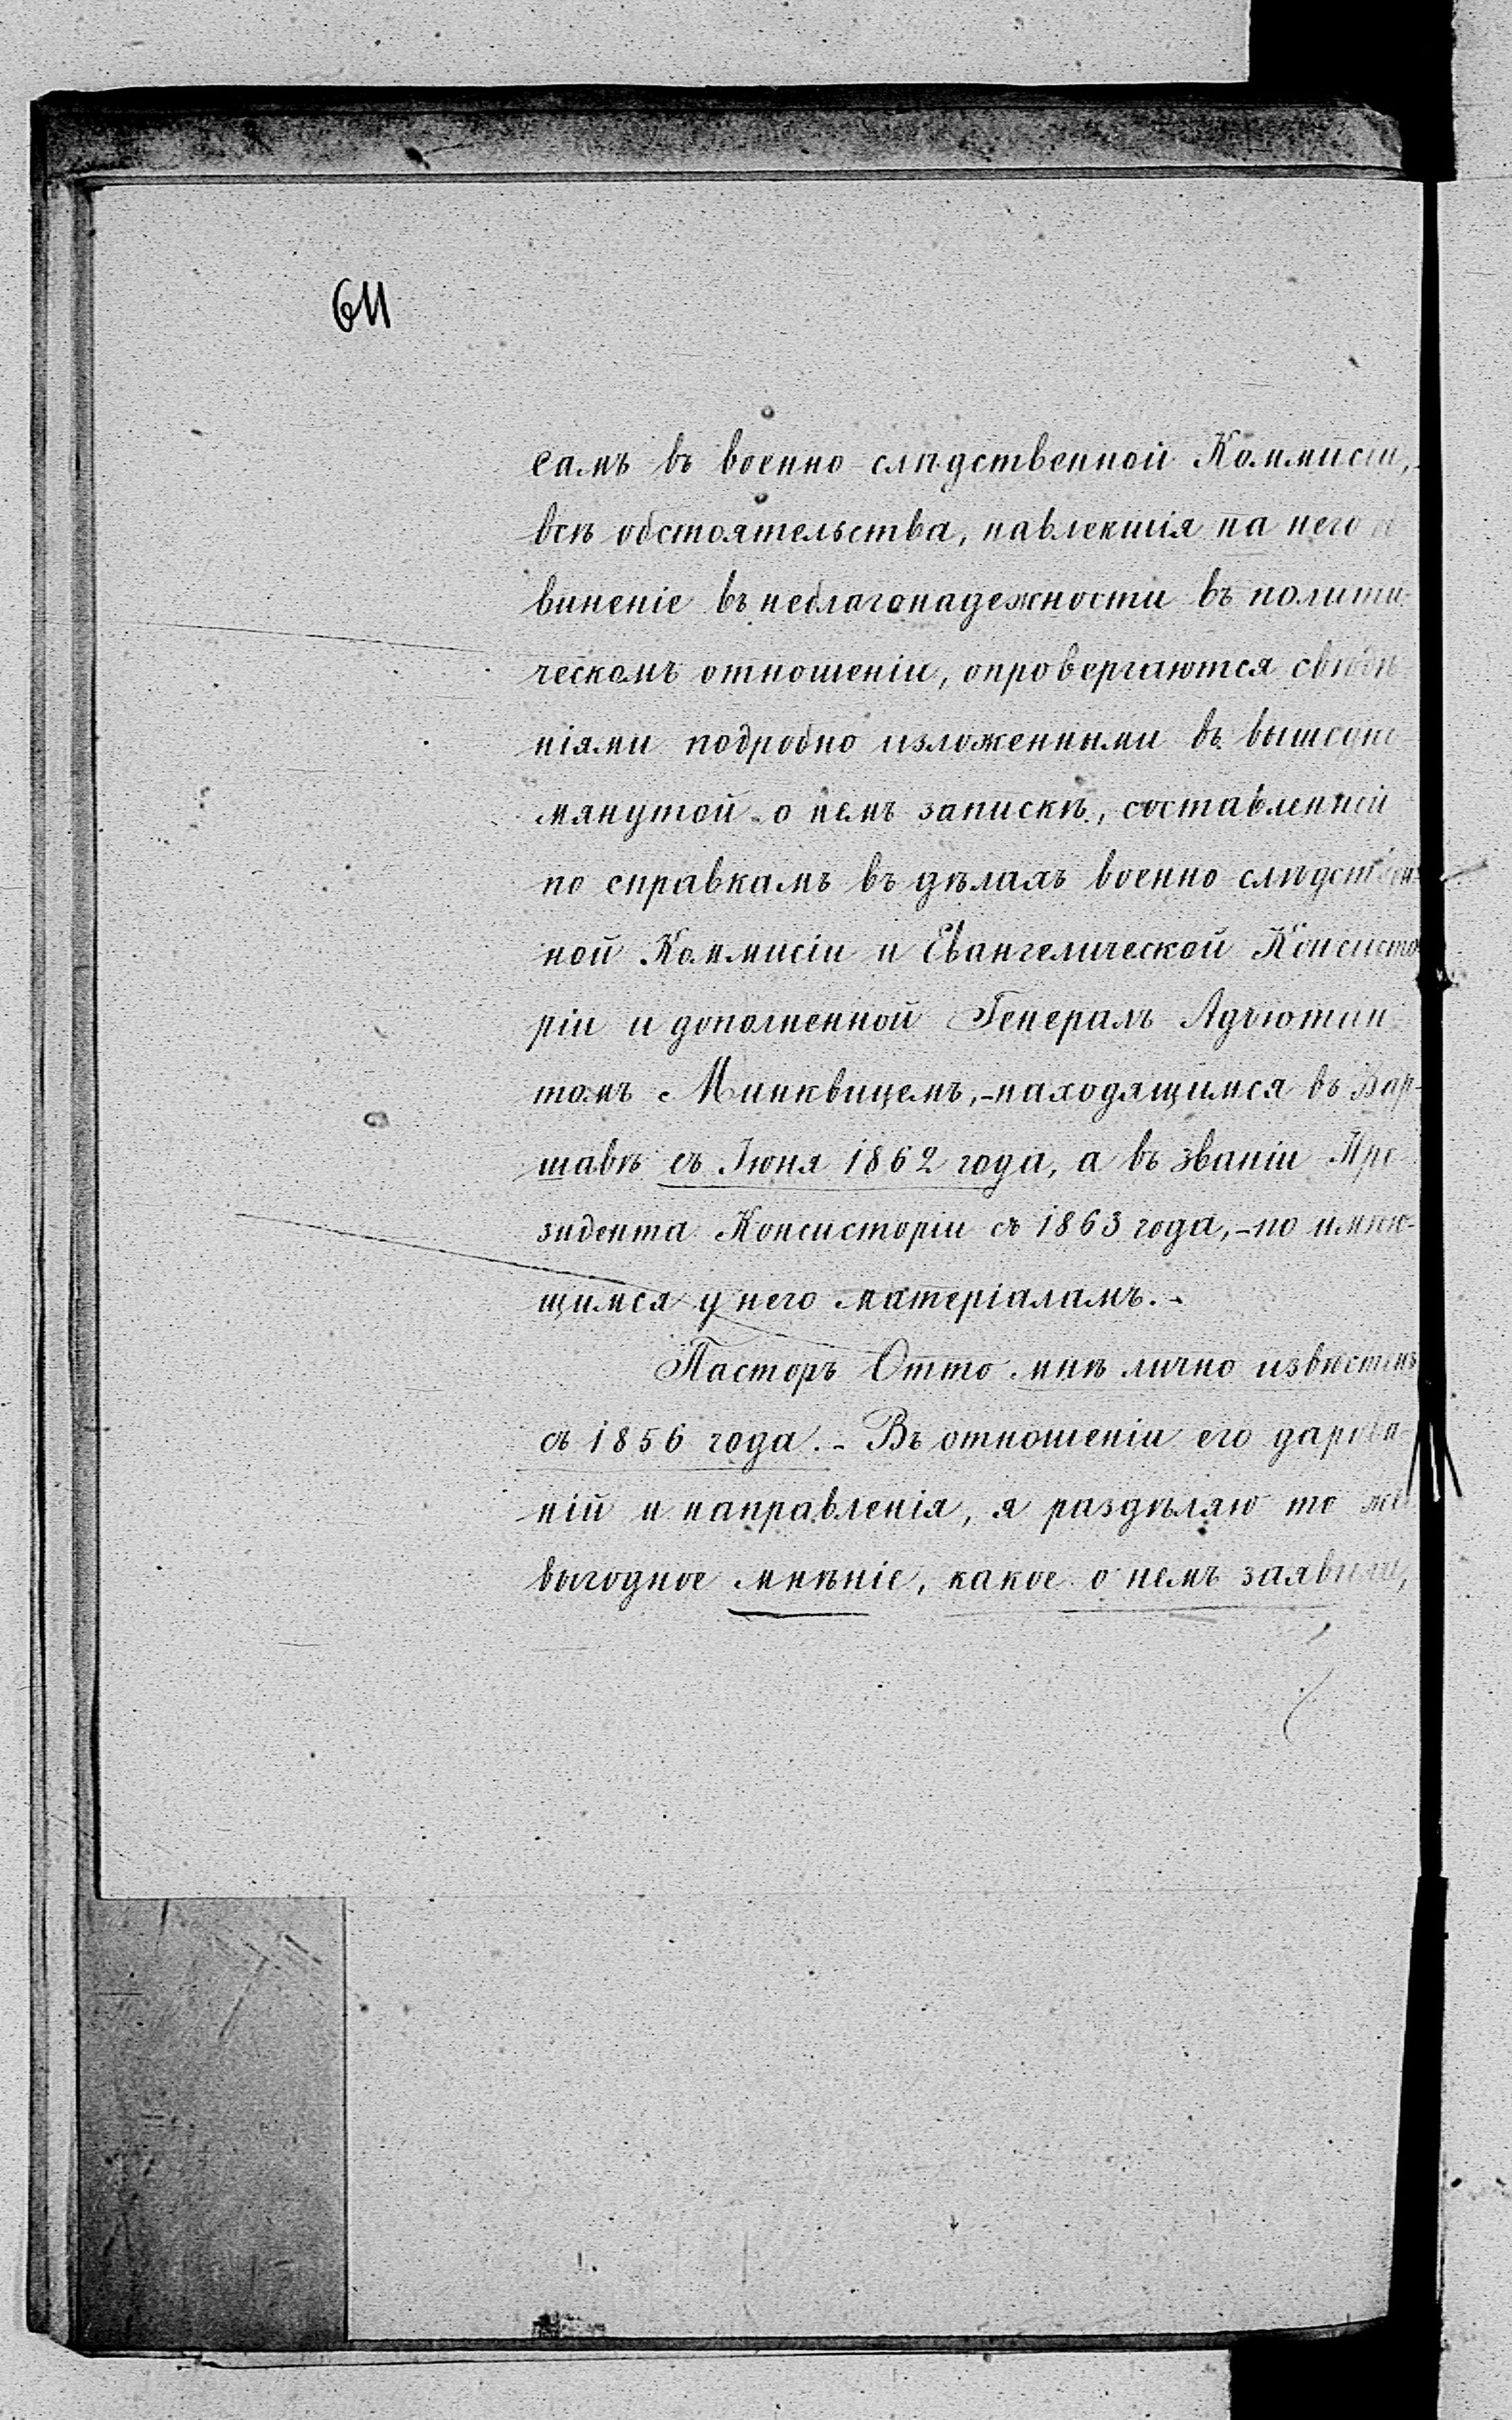 611
самъ въ военно слѣдственной Коммисіи,
всѣ обстоятельства, навлекшія на него об
виненіе въ неблагонадежности въ полити-
ческомъ отношеніи, опровергаются свѣдѣ
ніями подробно изложенными въ вышеупо
мянутой о немъ запискѣ, составленной
по справкамъ въ дѣлахъ военно слѣдствен-
ной Коммисіи и Евангелической Консисто
ріи и дополненной Генералъ Адъютан
томъ Минквицемъ,-находящимся въ Вар-
шавѣ съ Іюня 1862 года, а въ званіи Пре
зидента Консисторіи съ 1863 года,-по имѣю-
щимся у него матеріаламъ.-
Пасторъ Отто мнѣ лично извѣстенъ
съ 1856 года.- Въ отношеніи его дарова-
ній и направленія, я раздѣляю то же
выгодное мнѣніе, какое о немъ заявили,